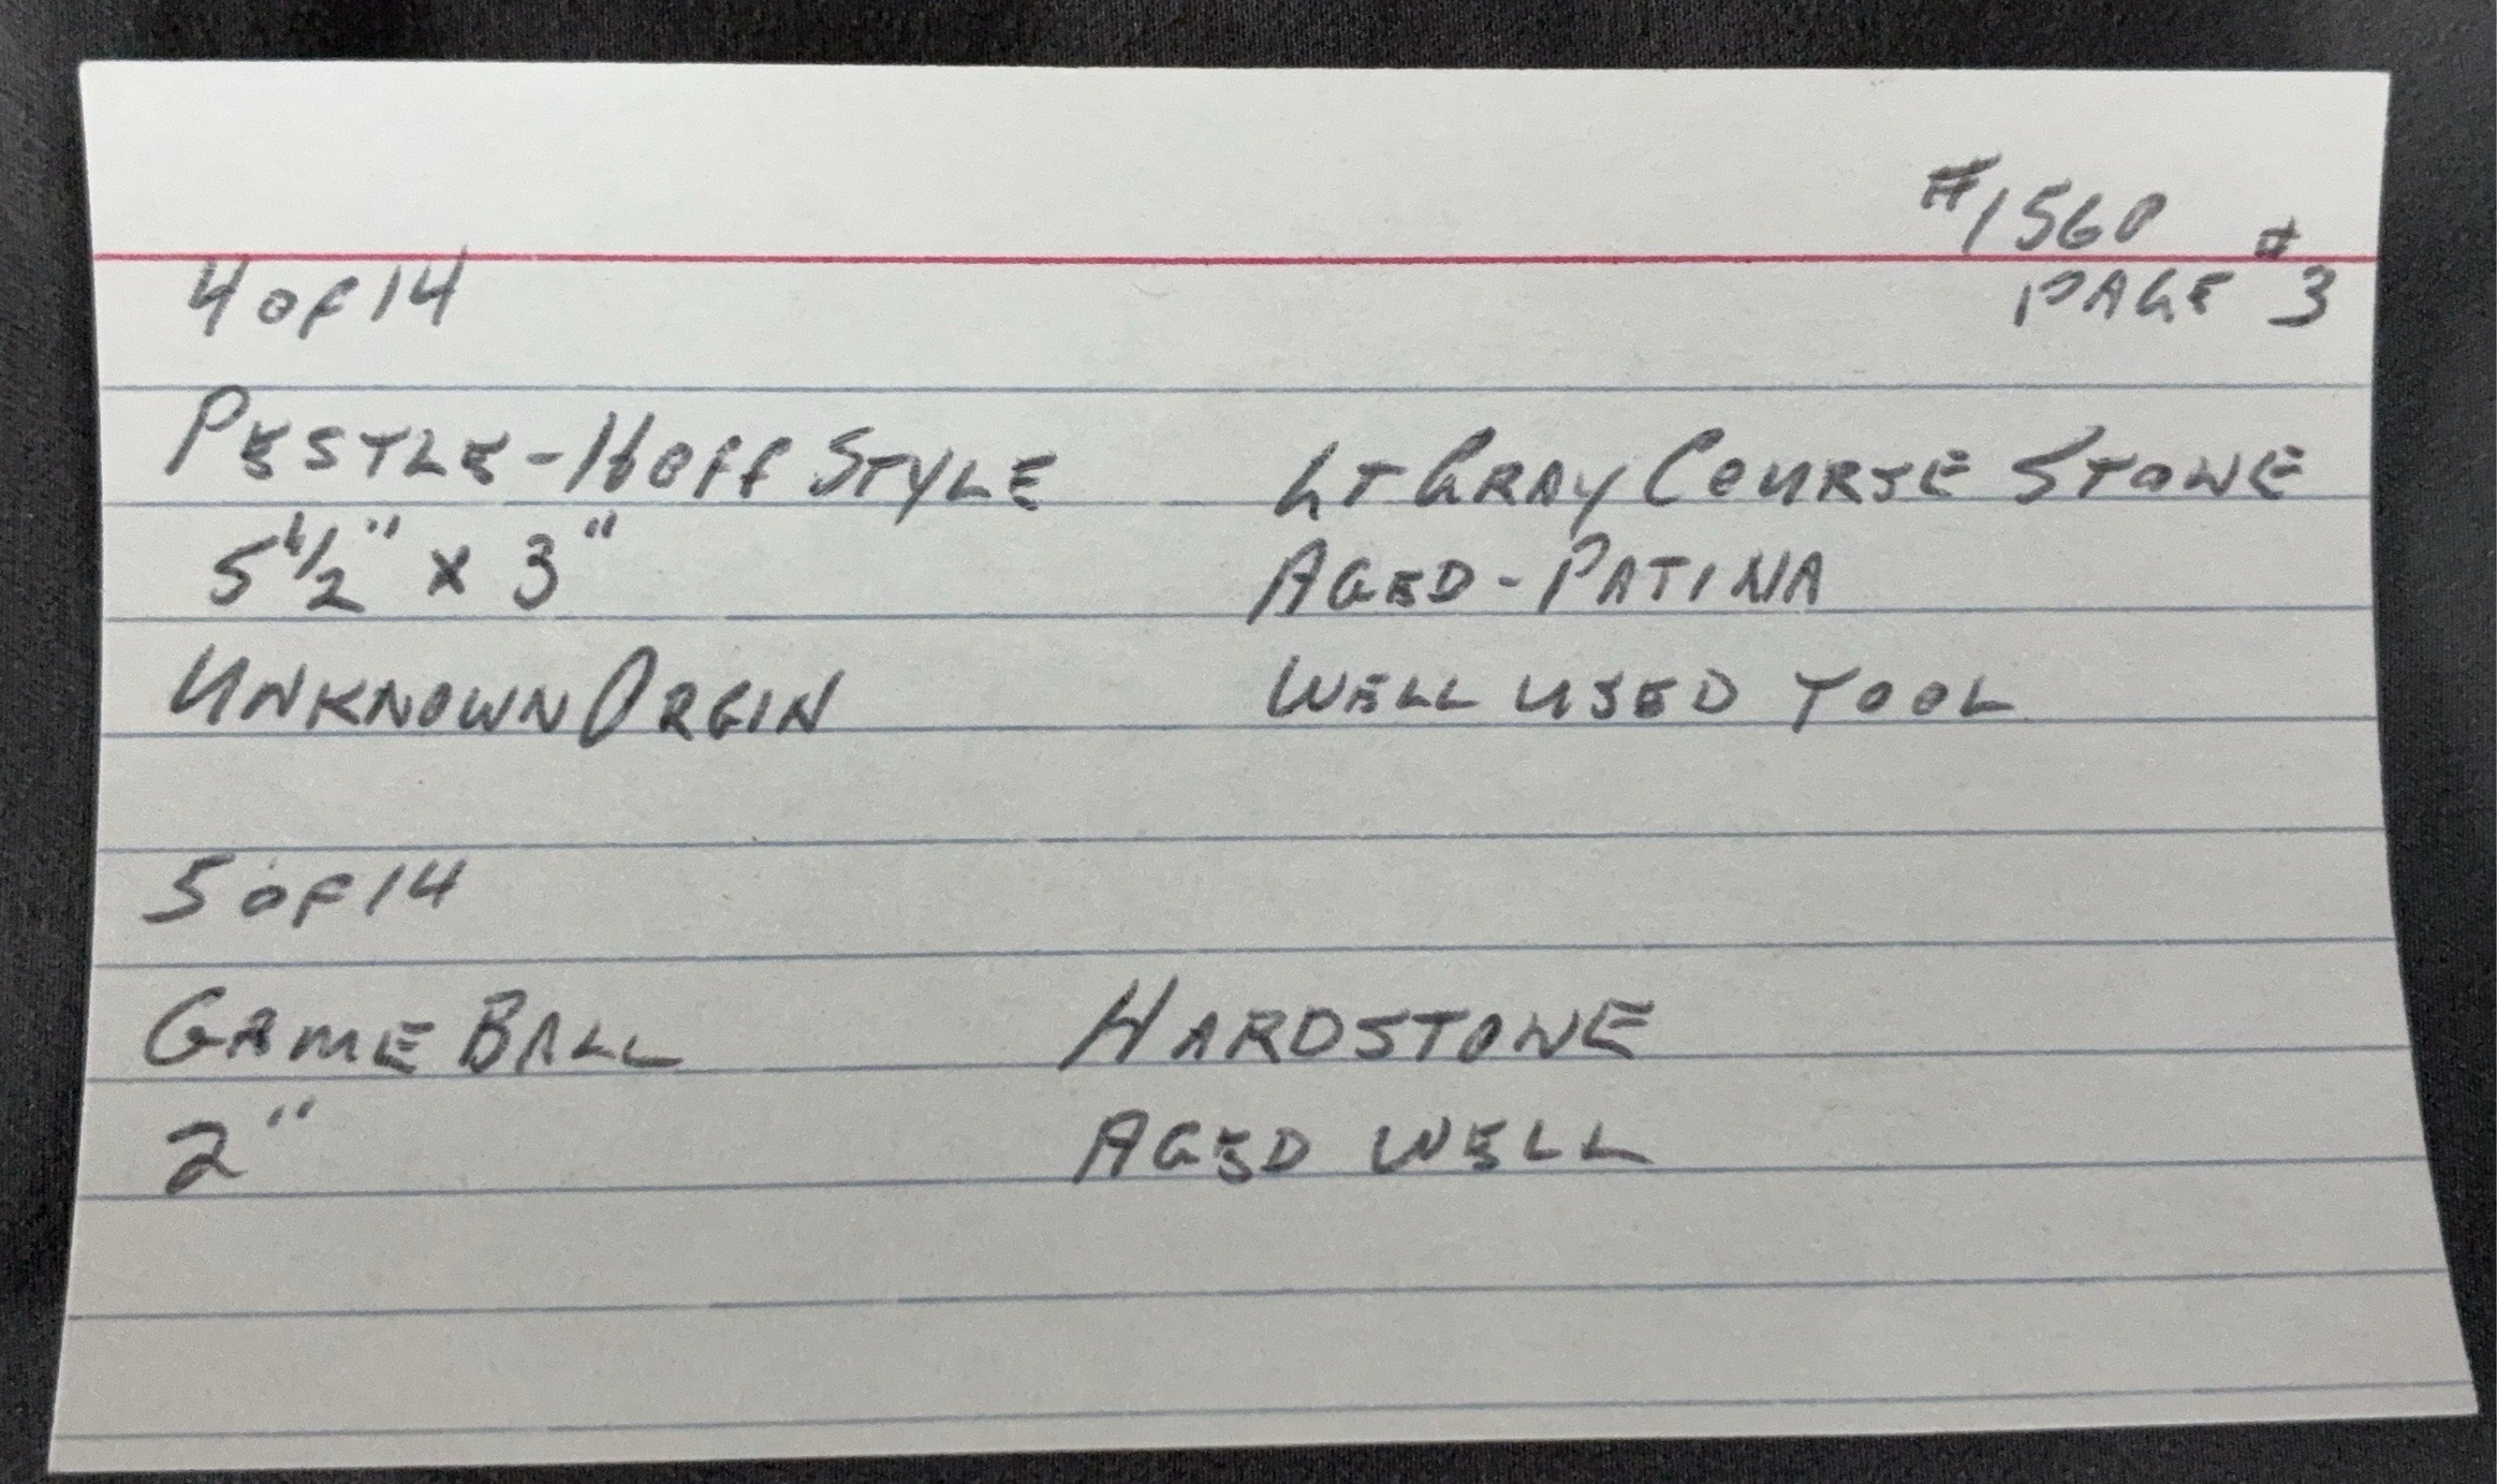 #1560
4 of 14 PAGE #3
PESTLE - HOFF STYLE LT GRAY COURSE STONE
5 1/2" x 3" AGED - PATINA
UNKNOWN ORGIN WELL USED TOOL
5 of 14
GAME BALL HARDSTONE
2" AGED WELL